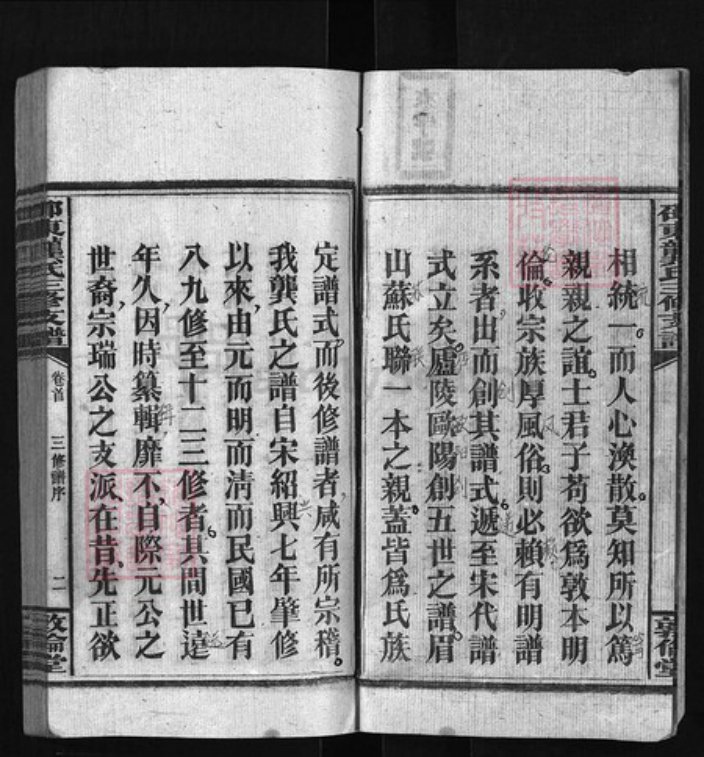 相統一而人心渙散莫知所以篤
親親之誼士君子苟欲爲敦本明
倫收宗族厚風俗則必賴有明譜
系者出而創其譜式遞至宋代譜
式立矣廬陵歐陽創五世之譜眉
山蘇氏聯一本之親蓋皆爲氏族
定譜式而後修譜者咸有所宗稽
我龔氏之譜自宋紹興七年肇修
以來由元而明而清而民國已有
八九修至十二三修者其間世遠
年久因時纂輯靡不自際元公之
世裔宗瑞公之支派在昔先正欲
邵東龔氏三修支譜
卷首
三修譜序
二
敦倫堂